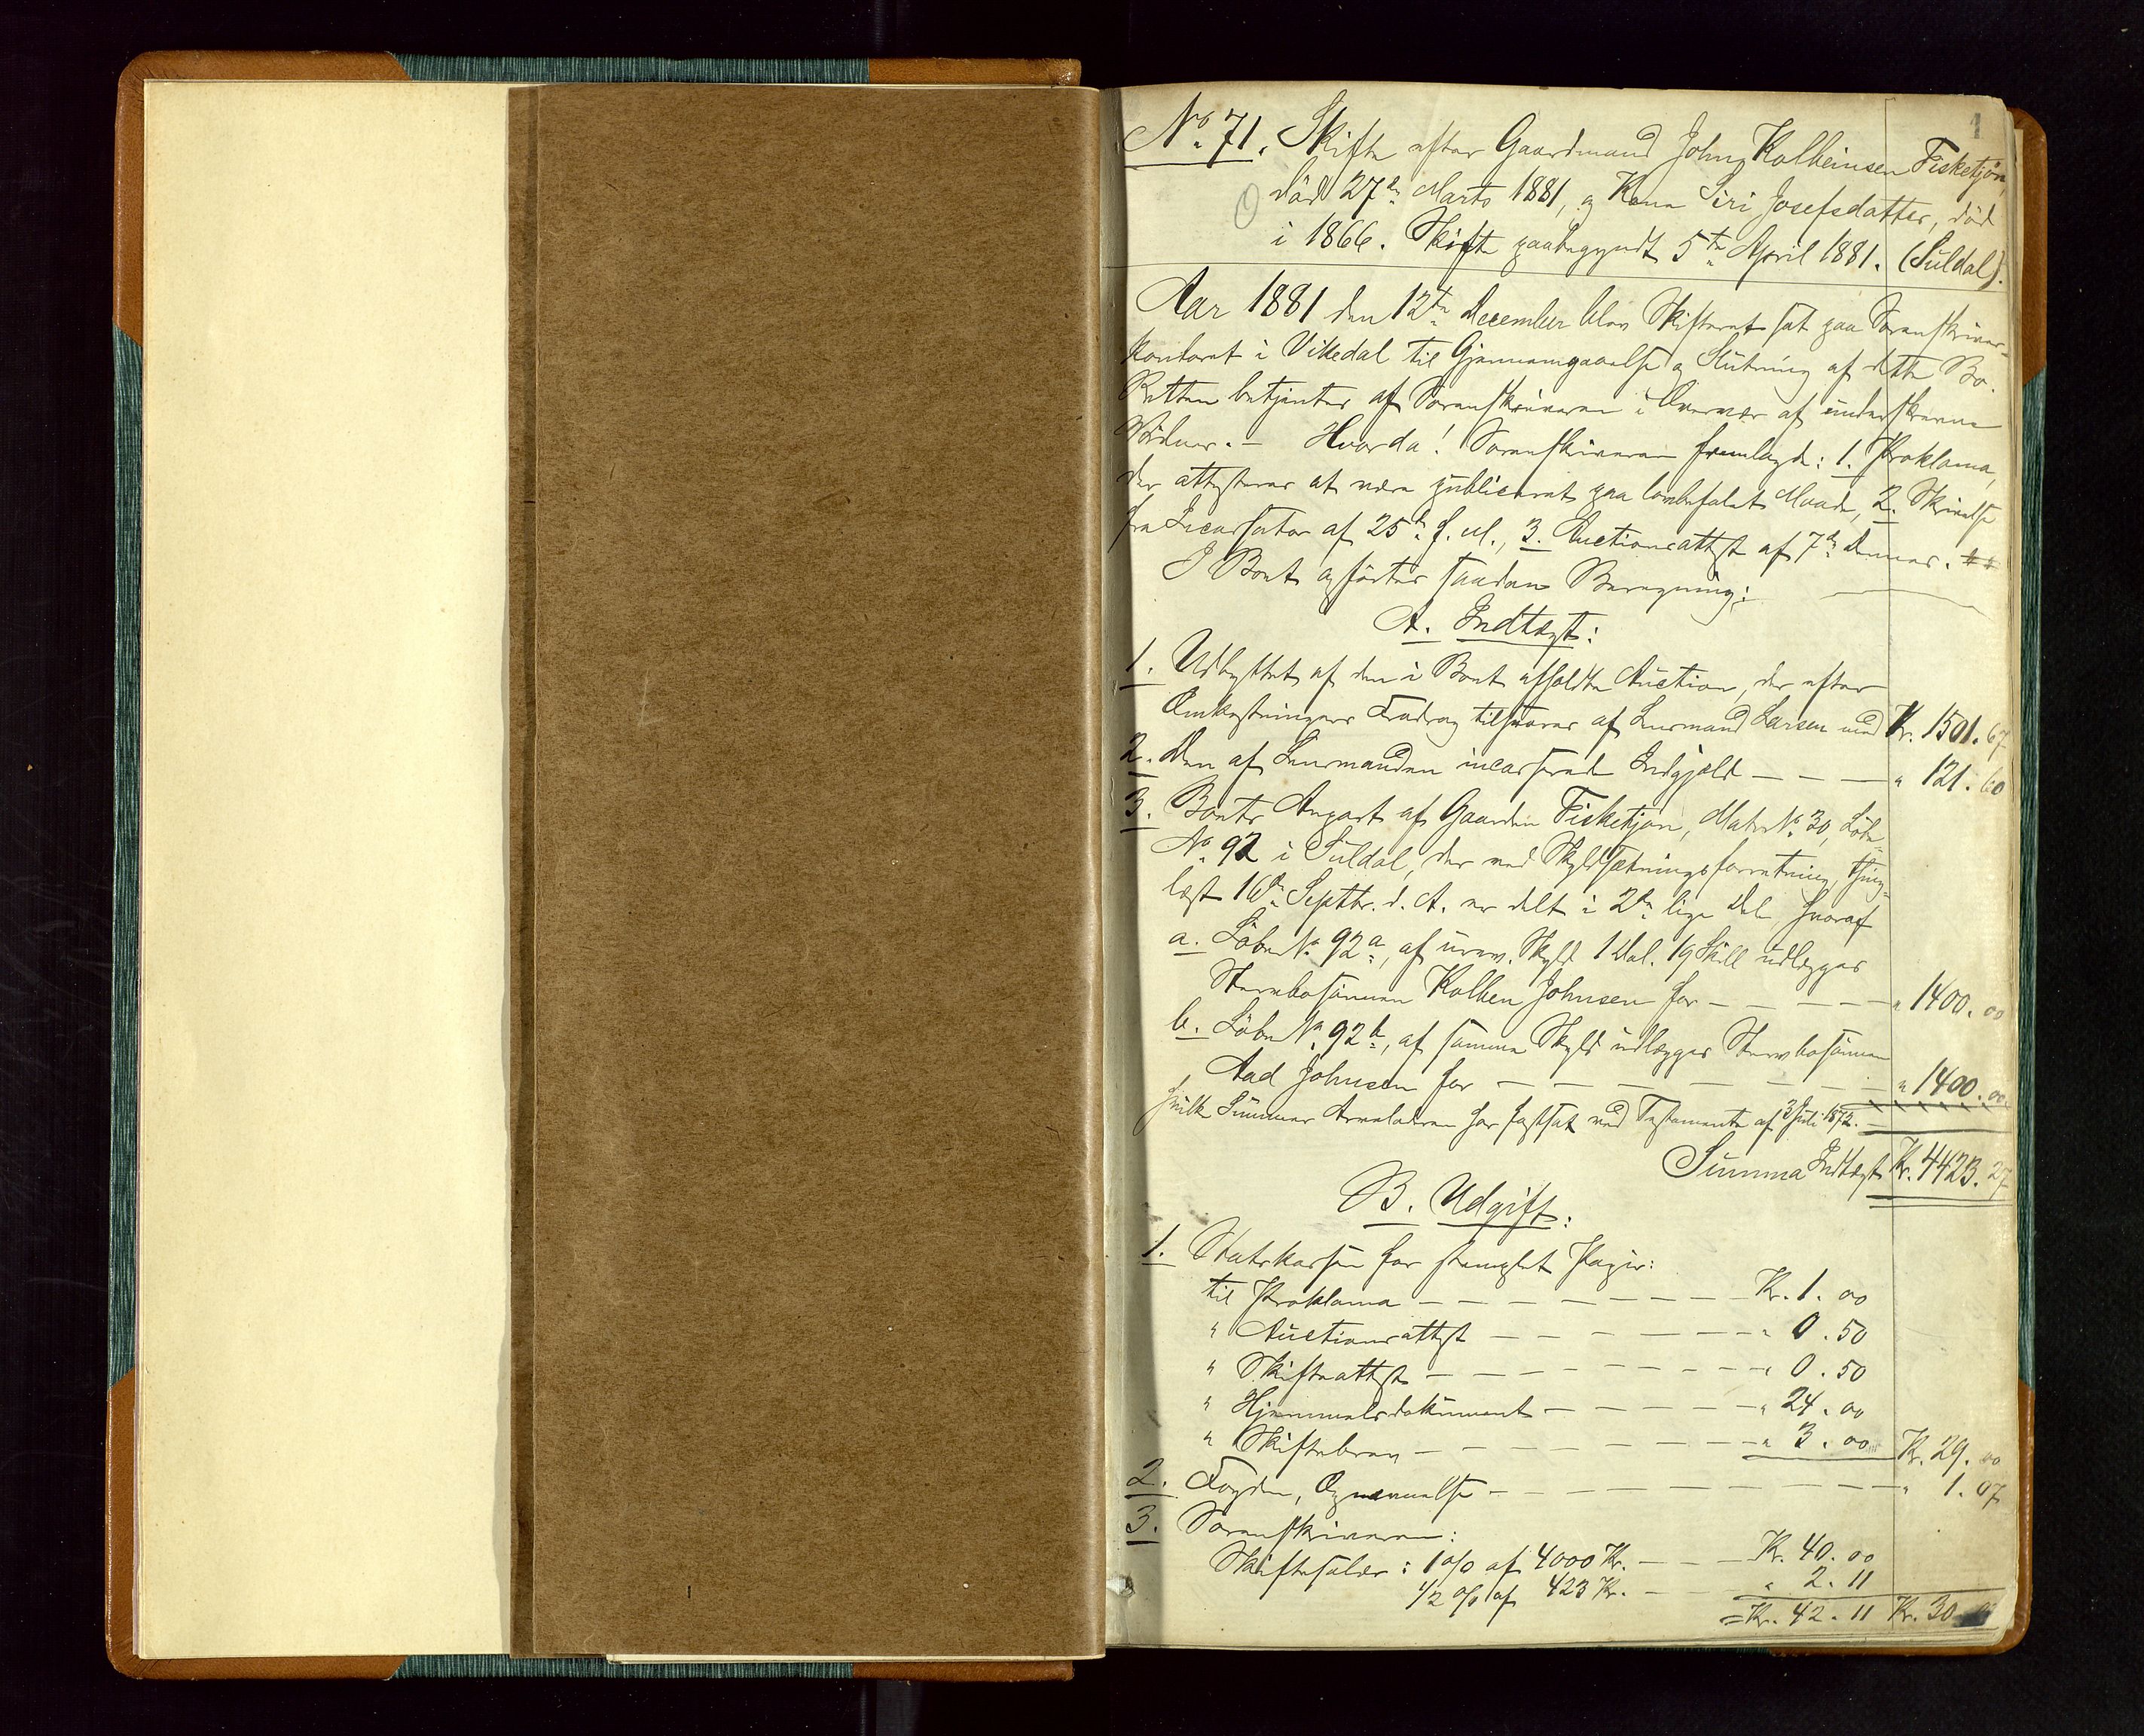 1
No. 71. Skifte efter Gaardmand John Kolbeinsen Fisketjøn,
død 27de Marts 1881, og Kone Siri Josefsdatter, død
i 1866. Skifte paabegyndt 5te April 1881. (Suldal).
Aar 1881 den 12te December blev Skifteret sat paa Sorenskriver-
kontoret i Vikedal til Gjennemgaaelse og Slutning af dette Bo.
Retten betjentes af Sorenskriveren i Overvær af underskrevne
Vidner. – Hvorda! Sorenskriveren fremlagde: 1. Proklama,
der attesteres at være publiceret paa lovbefalet Maade, 2. Skrivelse
fra Incassator af 25de f. M., 3. Auctionsattest af 7de dennes.
I Boet opførtes saadan Beregning:
A. Indtægt:
1. Udbyttet af den i Boet afholdte Auction, der efter
Omkostningers Fradrag tilsvares af Lensmand Larsen med Kr. 1501.67
2. Den af Lensmanden incasserede Indgjæld – – – " 121.60
3. Boets Anpart af Gaarden Fisketjøn, Matr No. 30, Løbe-
No. 92 i Suldal, der ved Skyldsætningsforretning, thing-
læst 16de Septbr. d. A. er delt i 2de lige Dele, hvoraf
a. Løbe No. 92a, af urev. Skyld 1 Dal. 19 Skill udlægges
Stervbosønnen Kolben Johnsen for – – – – – " 1400.00
b. Løbe No. 92b, af samme Skyld udlægges Stervbosønnen
Aad Johnsen for – – – – – – – – " 1400.00
hvilke Summer Arveladeren har fastsat ved Testamente af 3 Juli 1872. –
Summa Indtægt Kr. 4423.27
B. Udgift:
1. Statskassen for stemplet Papir:
til Proklama – – – – – – – – Kr. 1.00
" Auctionsattest – – – – – – – " 0.50
" Skifteattest – – – – – – – – " 0.50
" Hjemmelsdokument – – – – – " 24.00
" Skiftebrev – – – – – – – – " 3.00 Kr. 29.00
2. Fogden, Opnævnelse – – – – – – – – – – " 1.07
3. Sorenskriveren:
Skiftesalær: 1 o/o af 4000 Kr. – – – Kr. 40.00
1/2 o/o af 423 Kr. – – – " 2.11
= Kr. 42.11 Kr. 30